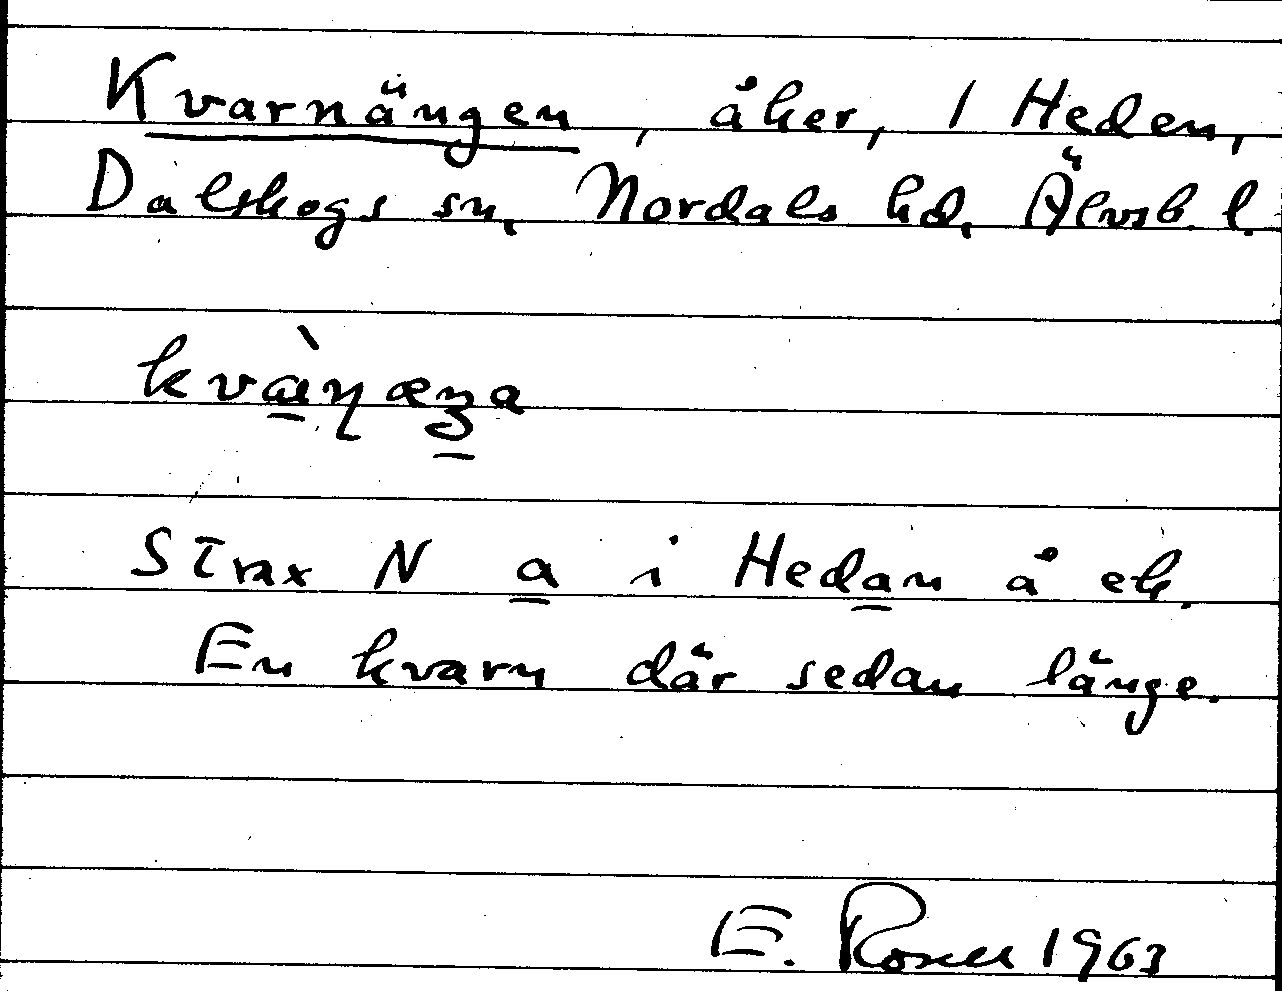 Kvarnängen, åker, 1 Heden,
Dalskogs sn, Nordals hd, Älvsb. l.
kvæ̠̀ɳæʒ̠a
Strax N a̠ i Heda̠n å ek.
En kvarn där sedan länge.
E. Rosell 1963